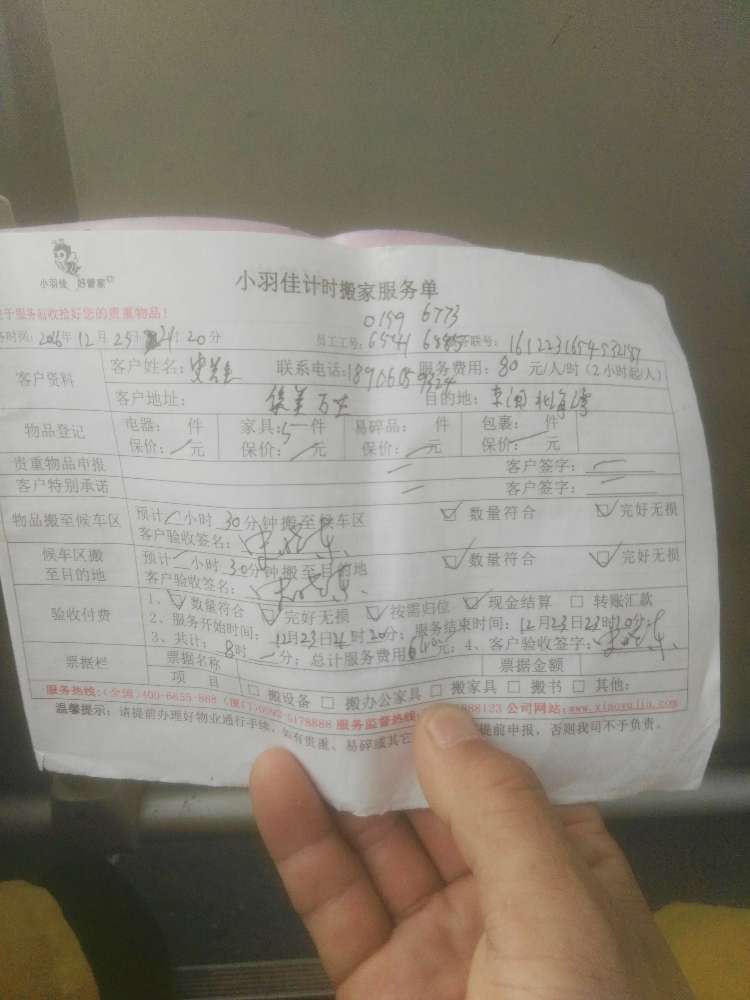 小羽佳 好管家
小羽佳计时搬家服务单
于服务验收捡好您的贵重物品!
0159 6773
时间: 2016年12月23日 21:20分 员工工号: 6541 联号: 1612231654532187
客户资料 客户姓名: 联系电话: 服务费用: 80 元/人/时(2小时起/人)
客户地址: 集美 目的地:
物品登记 电器: 件 家具:5件 易碎品: 件 包裹: 件
保价: 元 保价: 元 保价: 元 保价: 元
贵重物品申报 客户签字:
客户特别承诺 客户签字:
物品搬至候车区 预计 小时 30分钟搬至候车区 ☑ 数量符合 ☑ 完好无损
客户验收签名:
候车区搬至目的地 预计 小时 30分钟搬至目的地 ☑ 数量符合 ☑ 完好无损
客户验收签名:
验收付费 1、☑ 数量符合 ☑ 完好无损 ☑ 按需归位 ☑ 现金结算 □ 转账汇款
2、服务开始时间: 12月23日21时20分; 服务结束时间: 12月23日23时20分;
3、共计: 8时 分; 总计服务费用640元; 4、客户验收签字:
票据栏 票据名称 票据金额
项 目 □ 搬设备 □ 搬办公家具 □ 搬家具 □ 搬书 □ 其他:
服务热线:(全国)400-6655-888 (厦门)0592-5178888 服务监督热线 888123 公司网站:www.xiaoyujia.com
温馨提示: 请提前办理好物业通行手续, 如有贵重、易碎或其它 提前申报, 否则我司不予负责。